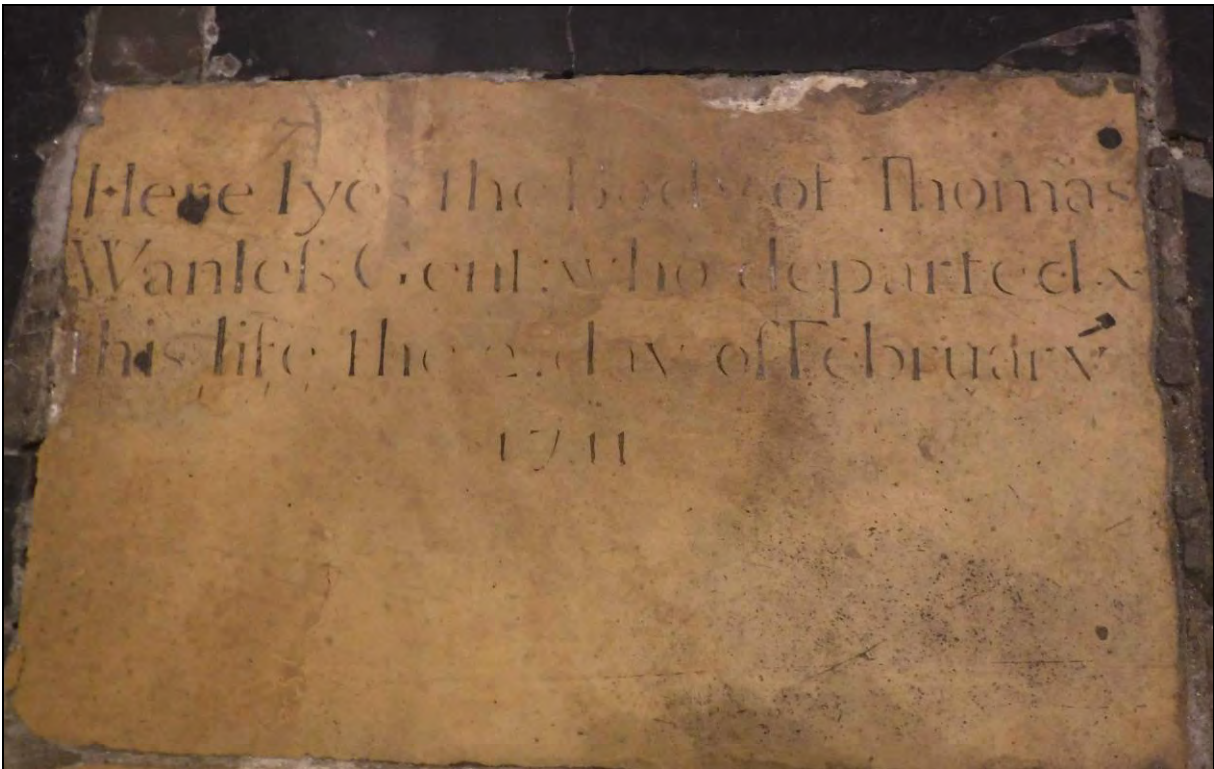 Here lyes the Body of Thomas
Wanleſs Gent: who departed
this life the 2. day of February
1711